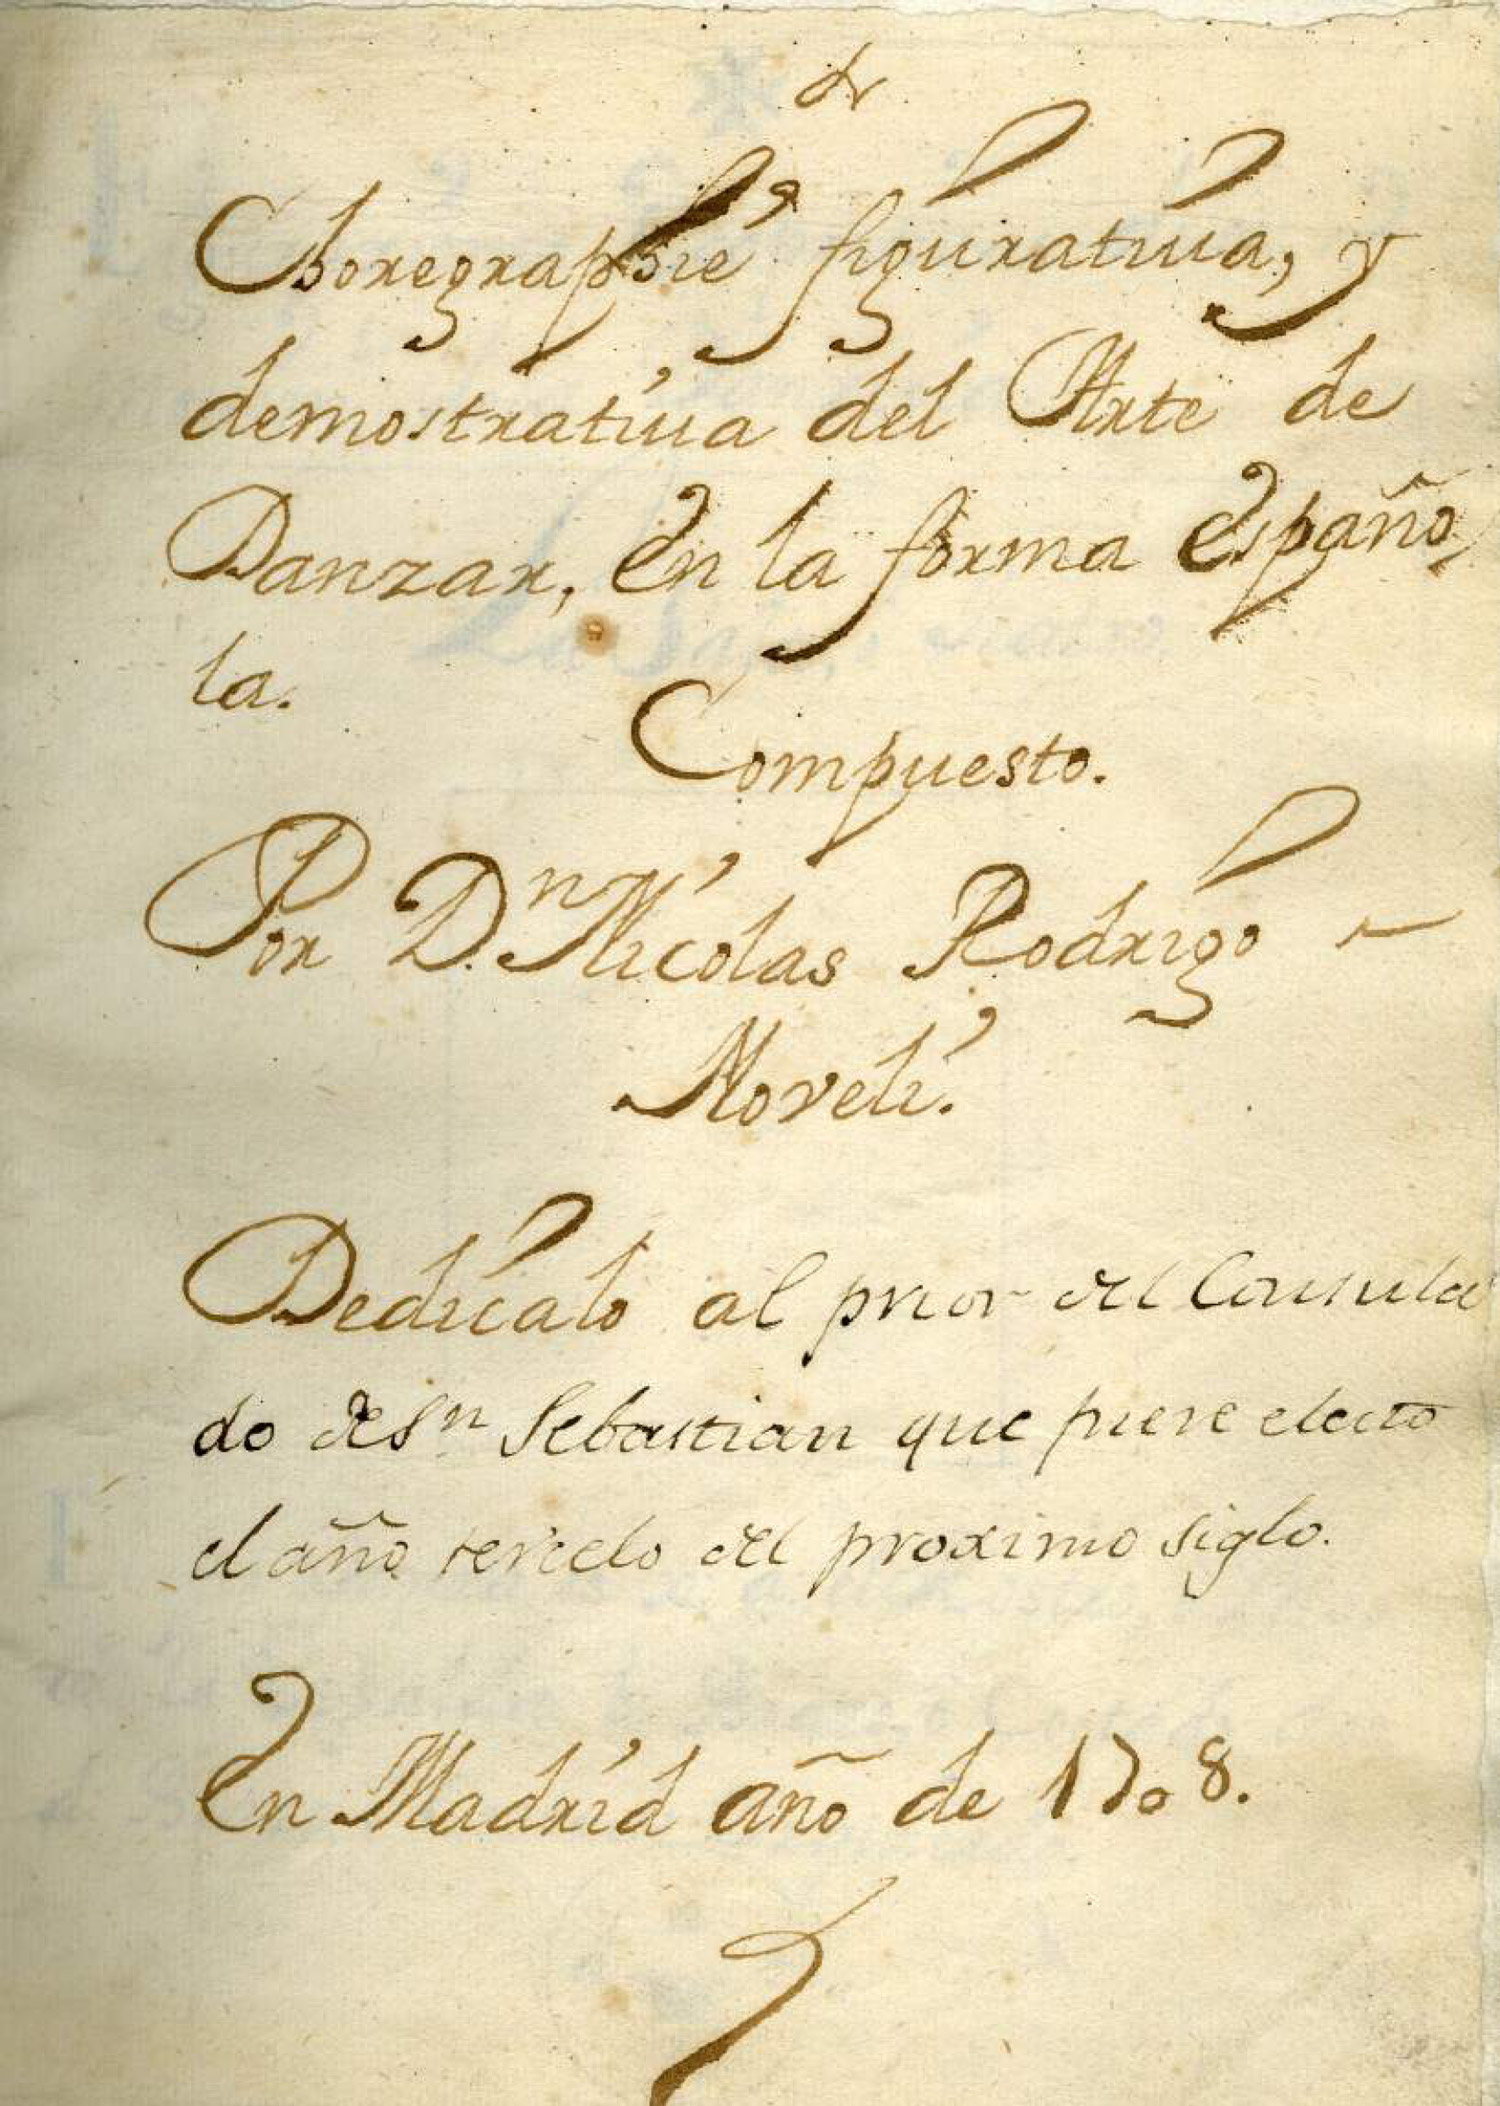 Choregraphie figurativa, y
demostrativa del Arte de
Danzar, En la forma Españo
la.
Compuesto.
Por D.ⁿ Nicolas Rodrigo
Noveli.
Dedícalo al prior del Consula
do de Sⁿ Sebastian que fuere electo
el año del proximo siglo.
En Madrid año de 1708.